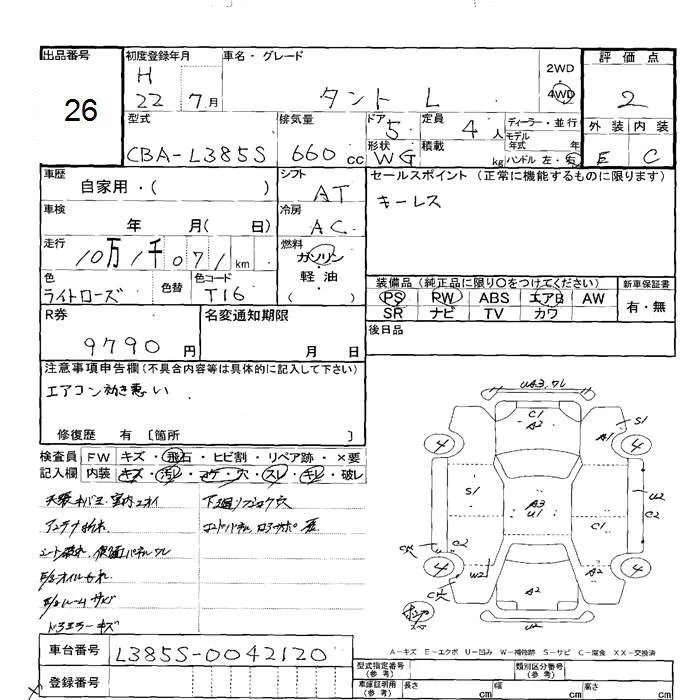 出品番号
26
初度登録年月
H
22 7月
車名・グレード
タント L
2WD
4WD
評価点
2
外装 内装
E C
型式
CBA-L385S
排気量
660 cc
ドア
5
形状
WG
定員
4人
積載
kg
ディーラー・並行
モデル
年式 年
ハンドル 左・右
車歴
自家用・( )
シフト
AT
セールスポイント (正常に機能するものに限ります)
キーレス
車検
年 月( 日)
冷房
AC
走行
10万1千071km
燃料
ガソリン
軽油
( )
色
ライトローズ
色替
色コード
T16
装備品(純正品に限り○をつけてください)
PS PW ABS エアB AW
SR ナビ TV カワ
新車保証書
有・無
R券
9790円
名変通知期限
月 日
後日品
注意事項申告欄(不具合内容等は具体的に記入して下さい)
エアコン効き悪い
修復歴 有 〔箇所 〕
検査員
記入欄
FW キズ・飛石・ヒビ割・リペア跡・×要
内装 キズ・汚レ・コゲ・穴・スレ・キレ・破レ
UA3.ワレ
C1
A2
A1
S1
4
4
S1
A3
U1
C1
U2
C2
C2
W2
A2
4
4
A2
U2
A-キズ E-エクボ U-凹み W-補修跡 S-サビ C-腐食 XX-交換済
車台番号
L385S-0042120
登録番号
型式指定番号
(参考)
類別区分番号
(参考)
車庫証明用
(参考)
長さ cm 幅 cm 高さ cm